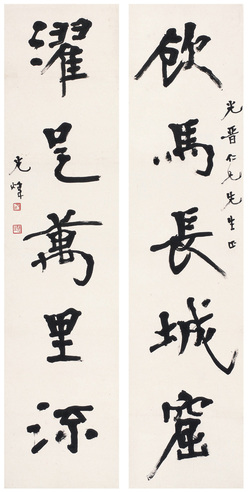 飲馬長城窟
光晋仁兄先生正
濯足萬里流
光煒